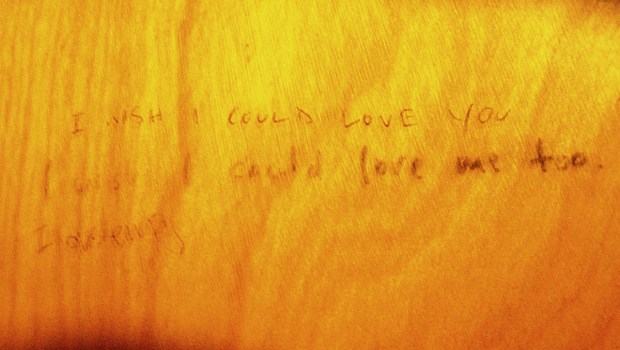 I WISH I COULD LOVE YOU
I wish I could love me too.